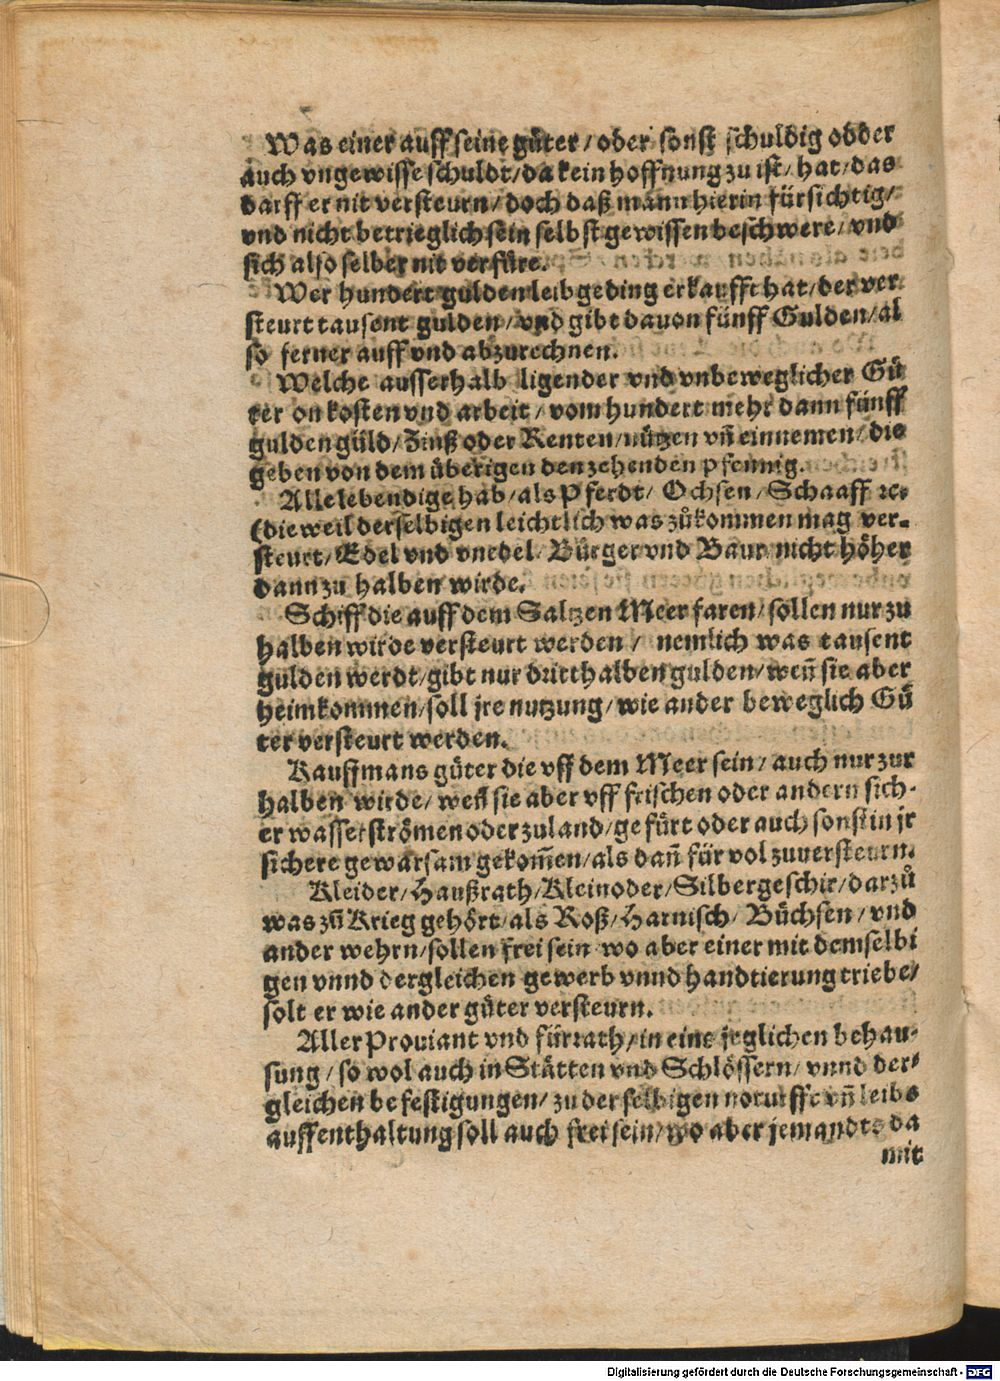 Was einer auff seine güter / oder sonst schuldig odder
auch vngewisse schuldt / da kein hoffnung zu ist / hat / das
darff er nit versteurn / doch daß mann hierin fürsichtig /
vnd nicht betrieglich sein selbst gewissen beschwere / vnd
sich also selber nit verfüre.
Wer hundert gulden leibgeding erkaufft hat / der ver
steurt tausent gulden / vnd gibt dauon fünff Gulden / al
so ferner auff vnd abzurechnen.
Welche ausserhalb ligender vnd vnbeweglicher Gü
ter on kosten vnd arbeit / vom hundert mehr dann fünff
gulden güld / Zinß oder Renten / nützen vñ einnemen / die
geben von dem überigen den zehenden pfennig.
Alle lebendige hab / als Pferdt / Ochsen / Schaaff ꝛc.
(die weil derselbigen leichtlich was zůkommen mag ver-
steurt / Edel vnd vnedel / Bürger vnd Baur nicht höher
dann zu halben wirde.
Schiff die auff dem Saltzen Meer faren / sollen nur zu
halben wirde versteurt werden / nemlich was tausent
gulden werdt / gibt nur dritthalben gulden / weñ sie aber
heimkommen / soll jre nutzung / wie ander beweglich Gü
ter versteurt werden.
Kauffmans güter die vff dem Meer sein / auch nur zur
halben wirde / weñ sie aber vff frischen oder andern sich-
er wasserströmen oder zu land / gefürt oder auch sonst in jr
sichere gewarsam gekom̃en / als dañ für vol zuuersteurn.
Kleider / Haußrath / Kleinoder / Silbergeschir / darzů
was zů Krieg gehört / als Roß / Harnisch / Büchsen / vnd
ander wehrn / sollen frei sein wo aber einer mit demselbi
gen vnnd dergleichen gewerb vnnd handtierung triebe /
solt er wie ander güter versteurn.
Aller Prouiant vnd fürrath / in eins jeglichen behau-
sung / so wol auch in Stätten vnd Schlössern / vnnd der-
gleichen befestigungen / zu der selbigen noturfft vñ leibs
auffenthaltung soll auch frei sein / wo aber jemandts da
mit
Digitalisierung gefördert durch die Deutsche Forschungsgemeinschaft - DFG